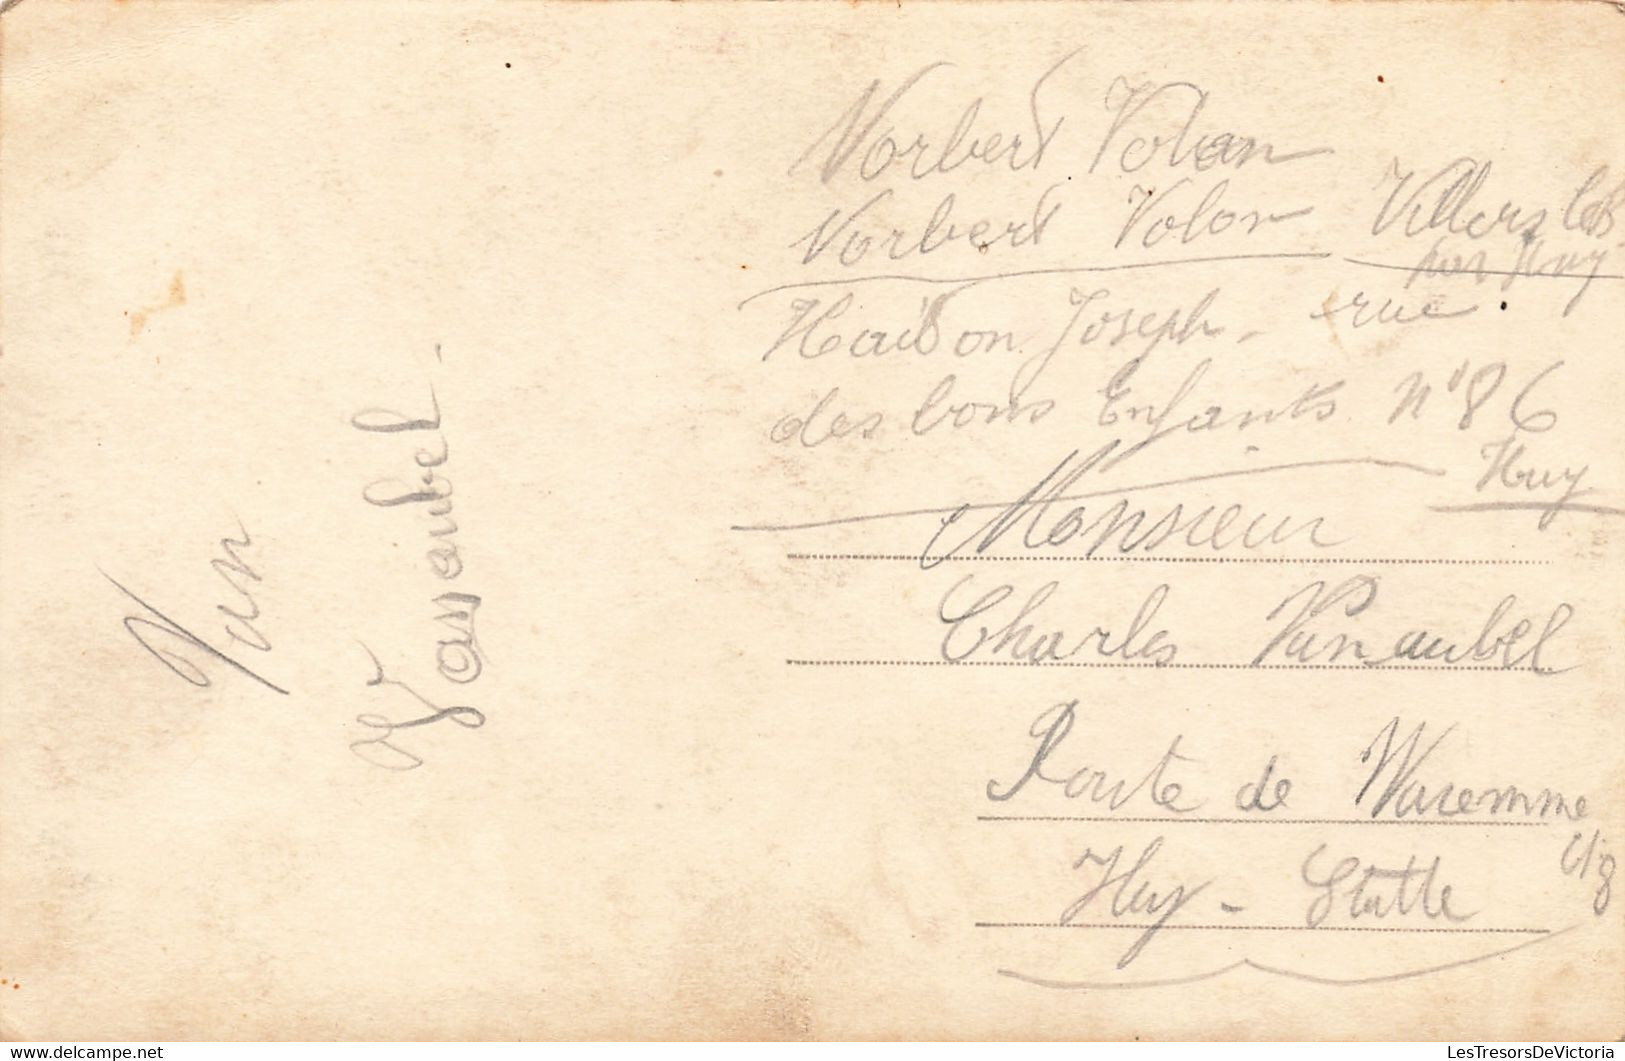 Van
Vanaubel.
Norbert Volon
Norbert Volon Villers le B.
par Huy
Haidon Joseph - rue
des bons Enfants N° 86
Huy
Monsieur
Charles Vanaubel
Route de Waremme
Huy - Statte
LesTresorsDeVictoria